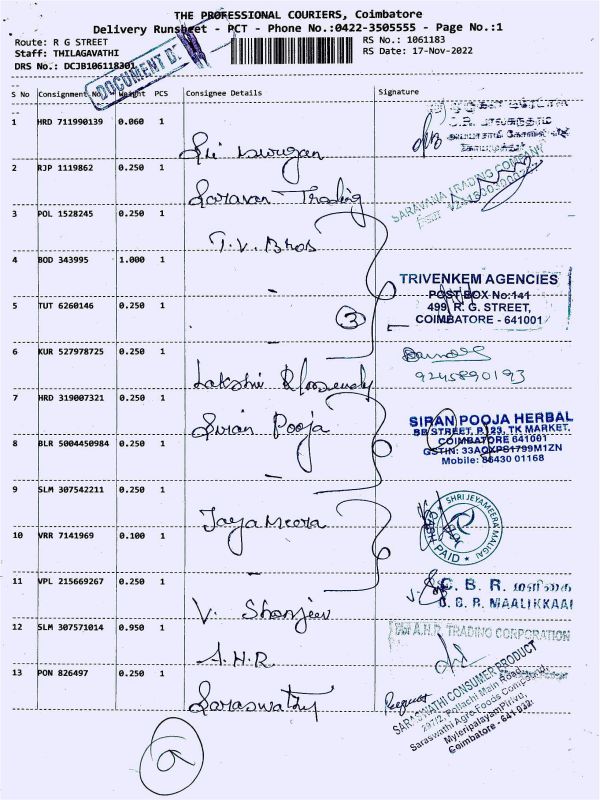 THE PROFESSIONAL COURIERS, Coimbatore
Delivery Runsheet - PCT - Phone No.:0422-3505555 - Page No.:1
Route: R G STREET
RS No.: 1061183
Staff: THILAGAVATHI
RS Date: 17-Nov-2022
DRS No.: DCJB106118301
DOCUMENT D.
S No Consignment No. Weight PCS Consignee Details Signature
1 HRD 711990139 0.060 1 Sri Murugan
2 RJP 1119862 0.250 1 Saravan Trading
SARAVANA TRADING COMPANY
3 POL 1528245 0.250 1 T.V. Bros
4 BOD 343995 1.000 1 -
TRIVENKEM AGENCIES
POST BOX No:141
499, R. G. STREET,
COIMBATORE - 641001
5 TUT 6260146 0.250 1 - 3
6 KUR 527978725 0.250 1 Lakshmi
9245890193
7 HRD 319007321 0.250 1 Siran Pooja
SIRAN POOJA HERBAL
BB STREET, P.123, TK MARKET,
COIMBATORE 641001
GSTIN: 33AQXPS1799M1ZN
Mobile: 86430 01168
8 BLR 5004450984 0.250 1 -
9 SLM 307542211 0.250 1 Jaya Meera
SHRI JEYAMEERA MALIGAI
CASH PAID
10 VRR 7141969 0.100 1 -
11 VPL 215669267 0.250 1 V. Shanjeev
C. B. R. மளிகை
C. B. R. MAALIKKAAI
12 SLM 307571014 0.950 1 A.H.R
A.H.R. TRADING CORPORATION
13 PON 826497 0.250 1 Saraswathy
SARASWATHI CONSUMER PRODUCT
297/2, Pollachi Main Road,
Saraswathi Agro Foods Compound,
MyleripalayamPirivu,
Coimbatore - 641 032